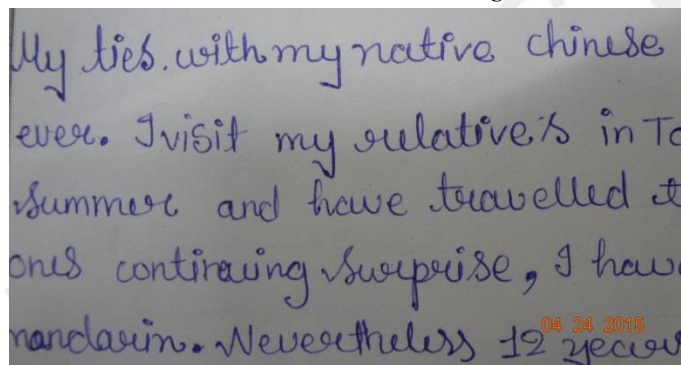 My ties. with my native chinese
ever. I visit my relative's in To
summer and have travelled t
ones continuing surprise, I hav
mandarin. Nevertheless 12 years
04 24 2015